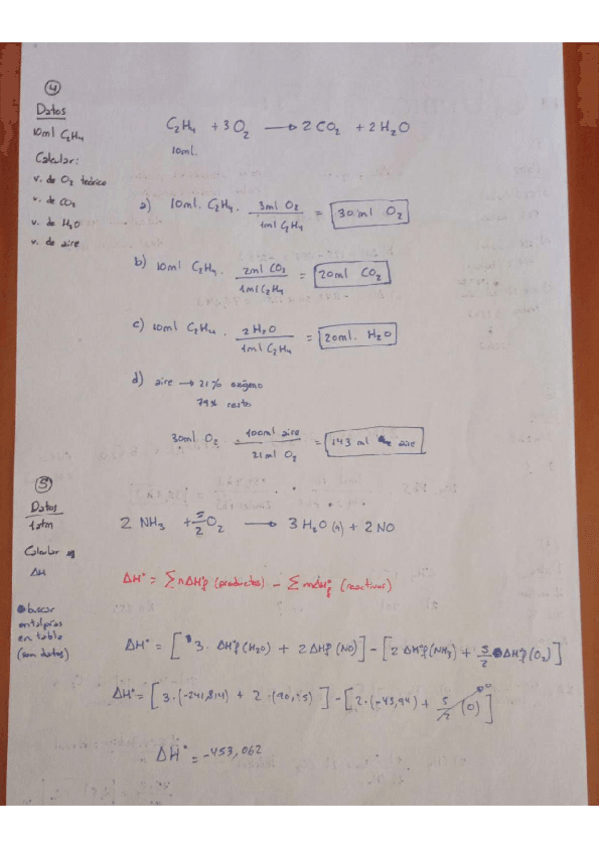 4
Datos
10ml C₂H₄
Calcular:
v. de O₂ teórico
v. de CO₂
v. de H₂O
v. de aire
C₂H₄ + 3O₂ → 2 CO₂ + 2 H₂O
10ml.
a) 10ml. C₂H₄ · 3ml O₂ / 1ml C₂H₄ = 30 ml O₂
b) 10ml C₂H₄ · 2ml CO₂ / 1ml C₂H₄ = 20ml CO₂
c) 10ml C₂H₄ · 2 H₂O / 1ml C₂H₄ = 20ml. H₂O
d) aire → 21% oxígeno
79% resto
30ml O₂ · 100ml aire / 21ml O₂ = 143 ml aire
5
Datos
1 atm
Calcular
ΔH
buscar
entalpías
en tabla
(son datos)
2 NH₃ + 5/2 O₂ → 3 H₂O (g) + 2 NO
ΔH° = ∑ n ΔH°f (productos) - ∑ m ΔH°f (reactivos)
ΔH° = [3 · ΔH°f (H₂O) + 2 ΔH°f (NO)] - [2 ΔH°f (NH₃) + 5/2 ΔH°f (O₂)]
ΔH° = [3 · (-241,814) + 2 · (90,25)] - [2 · (-45,94) + 5/2 (0)]
ΔH° = -453,062